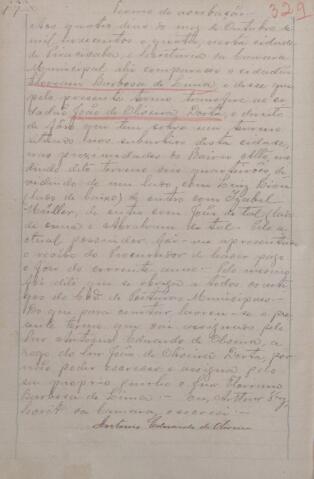 17
329
Termo de averbação
Aos quatro dias do mez de Outubro de
mil, novecentos e quinze, nesta cidade
de Piracicaba, e Secretaria da Camara
Municipal ahi compareceu o cidadão
Florencio Barbosa de Lima e disse que
pelo presente termo transfere ao ci-
dadão João de Oliveira Dorta, o direito
de fôro que tem sobre um terreno
situado nos suburbios desta cidade,
nas proximidades do Bairro Alto, me-
dindo dito terreno
vidindo de um lado com Luiz
(lado de baixo) de outro com Izabel
Müller, de outro com João de tal (lado
de cima) e Abrahum de tal. Pelo
actual possuidor foi-me apresentado
o recibo do Procurador de haver pago
o foro do corrente anno. Pelo mesmo
foi dito que se obriga a todos os arti-
gos do Cod. de Posturas Municipaes.
Do que para constar, lavrou-se o pre-
sente termo que vai assignado pelo
Snr Antonio Eduardo de Oliveira, a
rogo do Snr João de Oliveira Dorta, por
não poder escrever e assigna pelo
seu proprio punho o Snr Florencio
Barbosa de Lima. Eu, Arthur
Secret. da Camara, o escrevi.
Antonio Eduardo de Oliveira